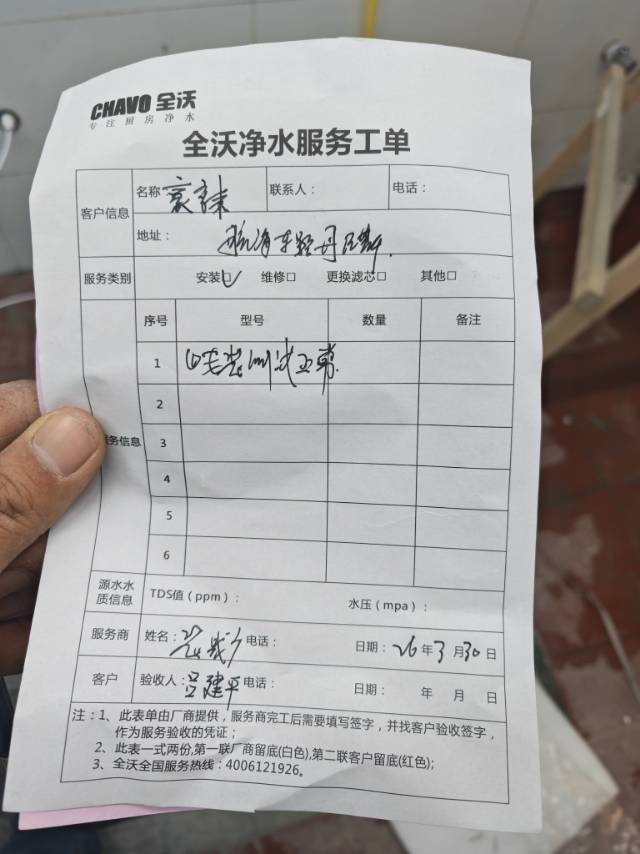 CHAVO 全沃
专注厨房净水
全沃净水服务工单
客户信息
名称
联系人：
电话：
地址：
服务类别
安装☑ 维修□ 更换滤芯□ 其他□
务信息
序号 型号 数量 备注
1 测试正常
2
3
4
5
6
源水水质信息
TDS值（ppm）： 水压（mpa）：
服务商
姓名： 电话： 日期：26年3月30日
客户
验收人：吕建平 电话： 日期： 年 月 日
注：1、此表单由厂商提供，服务商完工后需要填写签字，并找客户验收签字，
作为服务验收的凭证；
2、此表一式两份,第一联厂商留底(白色),第二联客户留底(红色);
3、全沃全国服务热线：4006121926。